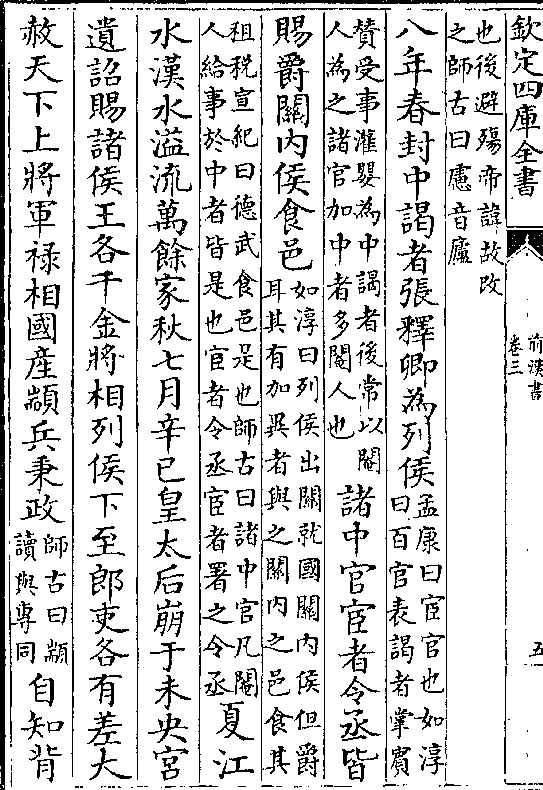 欽定四庫全書
前漢書
卷三
五
也後避殤帝諱故改
之師古曰慮音廬
八年春封中謁者張釋卿為列侯
孟康曰宦官也如淳
曰百官表謁者掌賓
賛受事灌嬰為中謁者後常以閹
人為之諸官加中者多閹人也
諸中官宦者令丞皆
賜爵關內侯食邑
如淳曰列侯出關就國關內侯但爵
耳其有加異者與之關內之邑食其
租税宣紀曰德武食邑是也師古曰諸中官凡閹
人給事於中者皆是也宦者令丞宦者署之令丞
夏江
水漢水溢流萬餘家秋七月辛巳皇太后崩于未央宮
遺詔賜諸侯王各千金將相列侯下至郎吏各有差大
赦天下上將軍禄相國産顓兵秉政
師古曰顓
讀與專同
自知背